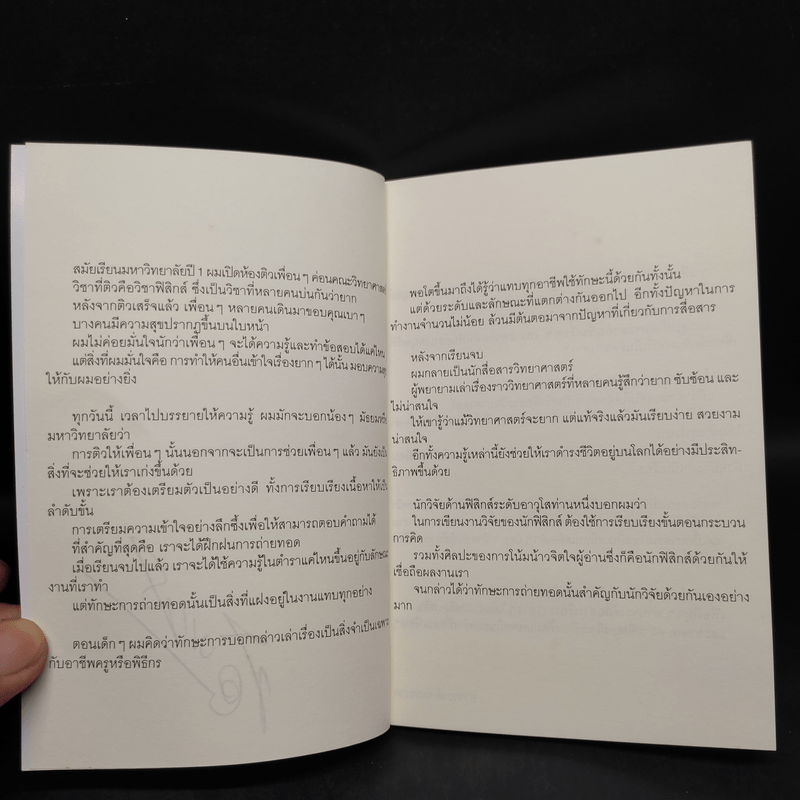 สมัยเรียนมหาวิทยาลัยปี 1 ผมเปิดห้องติวเพื่อน ๆ ค่อนคณะวิทยาศาสตร์
วิชาที่ติวคือวิชาฟิสิกส์ ซึ่งเป็นวิชาที่หลายคนบ่นกันว่ายาก
หลังจากติวเสร็จแล้ว เพื่อน ๆ หลายคนเดินมาขอบคุณเบา ๆ
บางคนมีความสุขปรากฏขึ้นบนใบหน้า
ผมไม่ค่อยมั่นใจนักว่าเพื่อน ๆ จะได้ความรู้และทำข้อสอบได้แค่ไหน
แต่สิ่งที่ผมมั่นใจคือ การทำให้คนอื่นเข้าใจเรื่องยาก ๆ ได้นั้น มอบความสุข
ให้กับผมอย่างยิ่ง
ทุกวันนี้ เวลาไปบรรยายให้ความรู้ ผมมักจะบอกน้อง ๆ มัธยมหรือ
มหาวิทยาลัยว่า
การติวให้เพื่อน ๆ นั้นนอกจากจะเป็นการช่วยเพื่อน ๆ แล้ว มันยังเป็น
สิ่งที่จะช่วยให้เราเก่งขึ้นด้วย
เพราะเราต้องเตรียมตัวเป็นอย่างดี ทั้งการเรียบเรียงเนื้อหาให้เป็น
ลำดับขั้น
การเตรียมความเข้าใจอย่างลึกซึ้งเพื่อให้สามารถตอบคำถามได้
ที่สำคัญที่สุดคือ เราจะได้ฝึกฝนการถ่ายทอด
เมื่อเรียนจบไปแล้ว เราจะได้ใช้ความรู้ในตำราแค่ไหนขึ้นอยู่กับลักษณะ
งานที่เราทำ
แต่ทักษะการถ่ายทอดนั้นเป็นสิ่งที่แฝงอยู่ในงานแทบทุกอย่าง
ตอนเด็ก ๆ ผมคิดว่าทักษะการบอกกล่าวเล่าเรื่องเป็นสิ่งจำเป็นเฉพาะ
กับอาชีพครูหรือพิธีกร
พอโตขึ้นมาถึงได้รู้ว่าแทบทุกอาชีพใช้ทักษะนี้ด้วยกันทั้งนั้น
แต่ด้วยระดับและลักษณะที่แตกต่างกันออกไป อีกทั้งปัญหาในการ
ทำงานจำนวนไม่น้อย ล้วนมีต้นตอมาจากปัญหาที่เกี่ยวกับการสื่อสาร
หลังจากเรียนจบ
ผมกลายเป็นนักสื่อสารวิทยาศาสตร์
ผู้พยายามเล่าเรื่องราววิทยาศาสตร์ที่หลายคนรู้สึกว่ายาก ซับซ้อน และ
ไม่น่าสนใจ
ให้เขารู้ว่าแม้วิทยาศาสตร์จะยาก แต่แท้จริงแล้วมันเรียบง่าย สวยงาม
น่าสนใจ
อีกทั้งความรู้เหล่านี้ยังช่วยให้เราดำรงชีวิตอยู่บนโลกได้อย่างมีประสิท-
ธิภาพขึ้นด้วย
นักวิจัยด้านฟิสิกส์ระดับอาวุโสท่านหนึ่งบอกผมว่า
ในการเขียนงานวิจัยของนักฟิสิกส์ ต้องใช้การเรียบเรียงขั้นตอนกระบวน
การคิด
รวมทั้งศิลปะของการโน้มน้าวจิตใจผู้อ่านซึ่งก็คือนักฟิสิกส์ด้วยกันให้
เชื่อถือผลงานเรา
จนกล่าวได้ว่าทักษะการถ่ายทอดนั้นสำคัญกับนักวิจัยด้วยกันเองอย่าง
มาก